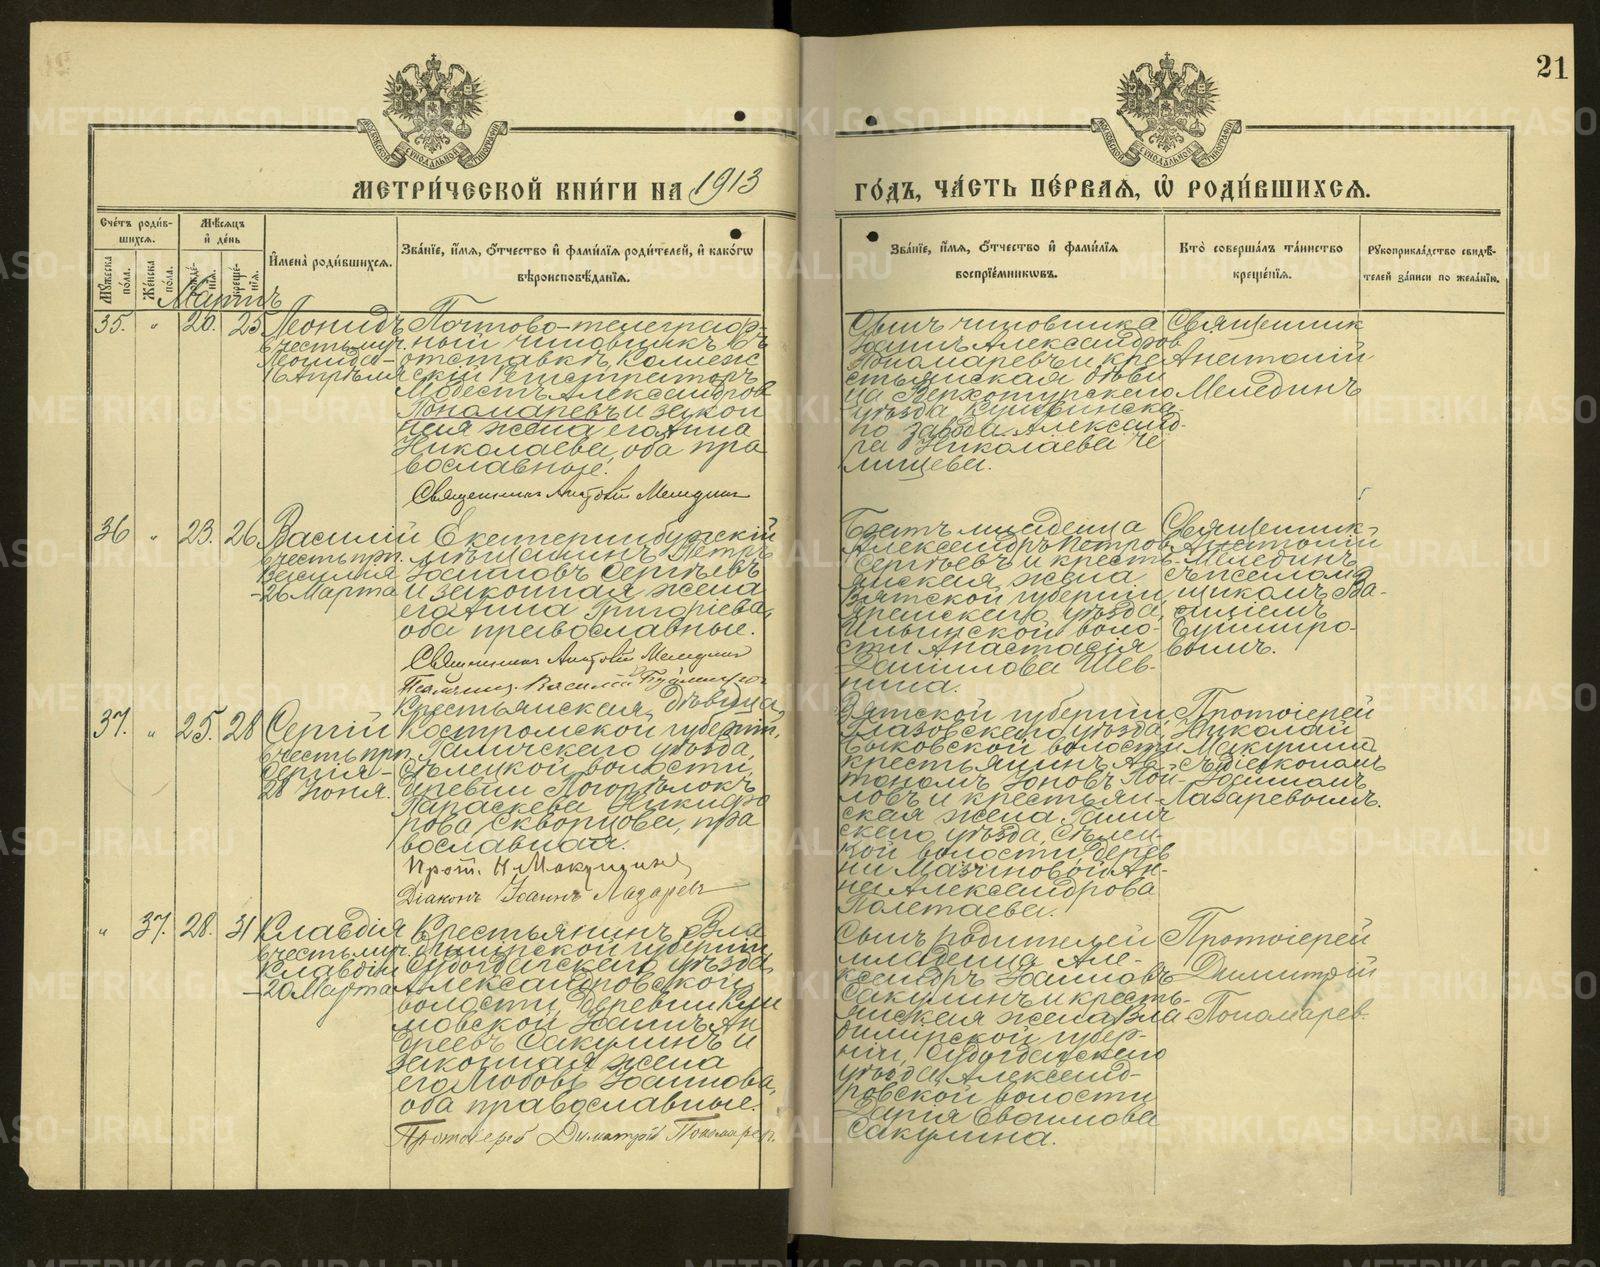 21
МЕТРИ́ЧЕСКОЙ КНИ́ГИ НА 1913
ГО́ДЪ, ЧА́СТЬ ПЕ́РВАѦ, Ѡ҆ РОДИ́ВШИХСѦ.
Сче́тъ роди́в-
шихсѧ.
Мѣ́сѧцъ
и҆ де́нь
И҆мена̀ роди́вшихсѧ.
Зва́нїе, и҆́мѧ, ѻ҆́тчество и҆ фами́лїѧ роди́телей, и҆ како́гѡ
вѣроисповѣ́данїѧ.
Зва́нїе, и҆́мѧ, ѻ҆́тчество и҆ фами́лїѧ
воспрїе́мниковъ.
Кто̀ соверша́лъ та́инство
креще́нїѧ.
Рꙋкоприкла́дство свидѣ́-
телей за́писи по жела́нїю.
Мꙋ́жеска
по́ла.
Же́нска
по́ла.
рожде́-
нїѧ.
креще́-
нїѧ.
Мартъ
35. " 20. 25.
Леонидъ
в честь муч.
Леонида –
16 Апрѣля
Почтово-телеграф-
ный чиновникъ въ
отставкѣ, Коллеж
скій Регистраторъ
Модестъ Александров
Пономаревъ и закон
ная жена его Анна
Николаева, оба пра
вославные.
Священникъ Анатолій Мелединъ
Сынъ чиновника
Іоаннъ Александров
Пономаревъ и кре
стьянская дѣви
ца Верхотурскаго
уѣзда, Кушвинска
го завода Александ-
ра Николаева Че
лищева.
Священник
Анатолій
Мелединъ
36 " 23. 26.
Василій
в честь прп.
Василія
– 26 Марта
Екатеринбургскій
мѣщанинъ Петръ
Іоанновъ Сергѣевъ
и законная жена
его Анна Григоріева,
оба православные.
Священникъ Анатолій Мелединъ
Псаломщ. Василій
Братъ младенца
Александръ Петров
Сергѣевъ и кресть-
янская жена
Вятской губерніи,
Яренскаго уѣзда,
Ильинской воло-
сти Анастасія
Даніилова Шев-
нина.
Священник
Анатолій
Мелединъ
съ псалом
щикомъ Ва-
силіемъ
37. " 25. 28
Сергій
в честь прп.
Сергія –
28 Іюня.
Крестьянская дѣвица,
Костромской губерніи,
Галичскаго уѣзда,
Сѣлецкой волости,
деревни Погорѣлокъ
Параскева Никифо
рова Скворцова, пра
вославная.
Прот. Н. Макушинъ
Діаконъ Іоаннъ Лазаревъ
Вятской губерніи,
Глазовскаго уѣзда,
Быковской волости
крестьянинъ Ав-
тономъ Іоновъ Пой-
ловъ и крестьян-
ская жена Галич
скаго уѣзда, Сѣлец-
кой волости, дерев
ни Мазиновой Ан-
на Александрова
Полетаева.
Протоіерей
Николай
Макушинъ
съ діакономъ
Іоанномъ
Лазаревымъ.
" 37. 28. 31
Клавдія
в честь муч.
Клавдіи
– 20 Марта
Крестьянинъ Вла
димірской губерніи
Судогдскаго уѣзда,
Александровской
волости, деревни Кли
мовской, Іоаннъ Ан
дреевъ Сакулинъ и
законная жена
его Любовь Іоаннова,
оба православные.
Протоіерей Димитрій Пономарев.
Сынъ родителей
младенца Але-
ксандръ Іоанновъ
Сакулинъ и кресть-
янская жена Вла
димирской губер-
ніи, Судогдскаго
уѣзда, Александ-
ровской волости
Дарія Евфимова
Сакулина.
Протоіерей
Димитрій
Пономарев.
METRIKI.GASO-URAL.RU